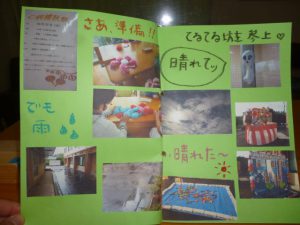 さあ、準備!!
でも
雨
てるてる坊主参上♡
晴れてッ
晴れた～